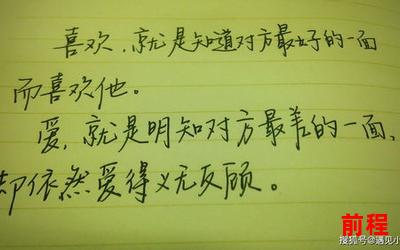 喜欢，就是知道对方最好的一面
而喜欢他。
爱，就是明知对方最差的一面、
却依然爱得义无反顾。
前程
搜狐号@遇见小